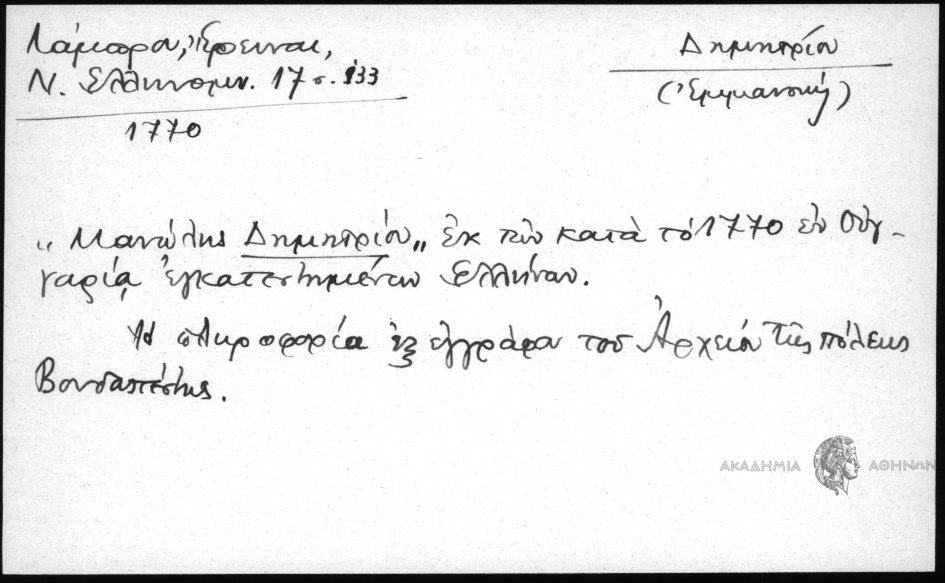 Λάμπρου, Ἔρευναι,
Ν. Ἑλληνομν. 17 σ. 133
1770
Δημητρίου
(Ἐμμανουήλ)
„Μανώλης Δημητρίου„ ἐκ τῶν κατὰ τὸ 1770 ἐν Οὑγ-
γαρίᾳ ἐγκατεστημένων Ἑλλήνων.
Ἡ πληροφορία ἐξ ἐγγράφου τοῦ Ἀρχείου τῆς πόλεως
Βουδαπέστης.
ΑΚΑΔΗΜΙΑ ΑΘΗΝΩΝ